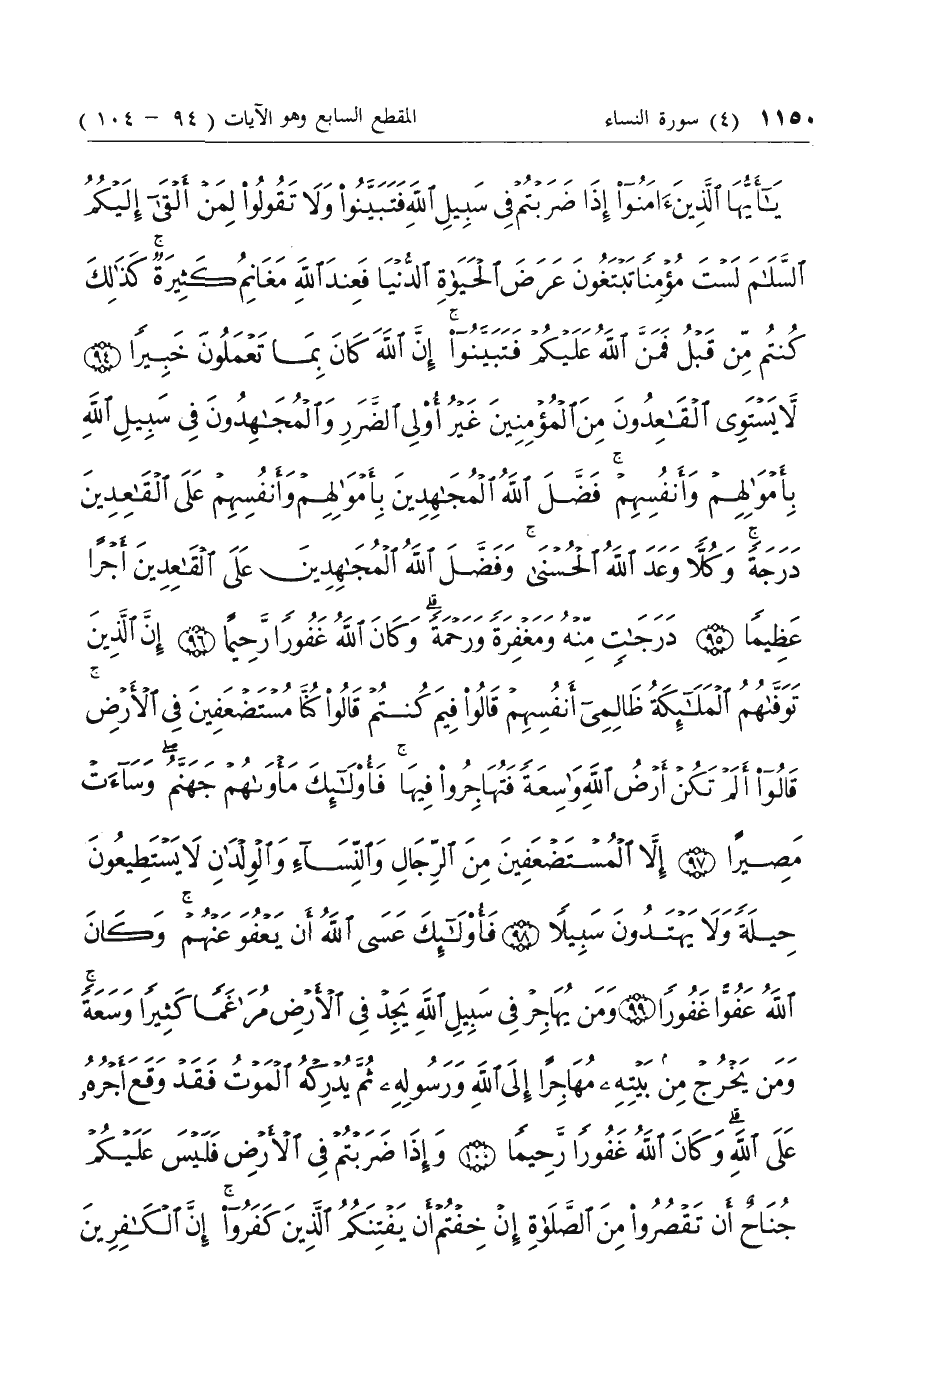 ١١٥٠ (٤) سورة النساء المقطع السابع وهو الآيات ( ٩٤ - ١٠٤ )
يَـٰٓأَيُّهَا ٱلَّذِينَ ءَامَنُوٓا۟ إِذَا ضَرَبْتُمْ فِى سَبِيلِ ٱللَّهِ فَتَبَيَّنُوا۟ وَلَا تَقُولُوا۟ لِمَنْ أَلْقَىٰٓ إِلَيْكُمُ
ٱلسَّلَـٰمَ لَسْتَ مُؤْمِنًا تَبْتَغُونَ عَرَضَ ٱلْحَيَوٰةِ ٱلدُّنْيَا فَعِندَ ٱللَّهِ مَغَانِمُ كَثِيرَةٌ ۚ كَذَٰلِكَ
كُنتُم مِّن قَبْلُ فَمَنَّ ٱللَّهُ عَلَيْكُمْ فَتَبَيَّنُوٓا۟ ۚ إِنَّ ٱللَّهَ كَانَ بِمَا تَعْمَلُونَ خَبِيرًا ﴿٩٤﴾
لَّا يَسْتَوِى ٱلْقَـٰعِدُونَ مِنَ ٱلْمُؤْمِنِينَ غَيْرُ أُو۟لِى ٱلضَّرَرِ وَٱلْمُجَـٰهِدُونَ فِى سَبِيلِ ٱللَّهِ
بِأَمْوَٰلِهِمْ وَأَنفُسِهِمْ ۚ فَضَّلَ ٱللَّهُ ٱلْمُجَـٰهِدِينَ بِأَمْوَٰلِهِمْ وَأَنفُسِهِمْ عَلَى ٱلْقَـٰعِدِينَ
دَرَجَةً ۚ وَكُلًّا وَعَدَ ٱللَّهُ ٱلْحُسْنَىٰ ۚ وَفَضَّلَ ٱللَّهُ ٱلْمُجَـٰهِدِينَ عَلَى ٱلْقَـٰعِدِينَ أَجْرًا
عَظِيمًا ﴿٩٥﴾ دَرَجَـٰتٍ مِّنْهُ وَمَغْفِرَةً وَرَحْمَةً ۚ وَكَانَ ٱللَّهُ غَفُورًا رَّحِيمًا ﴿٩٦﴾ إِنَّ ٱلَّذِينَ
تَوَفَّىٰهُمُ ٱلْمَلَـٰٓئِكَةُ ظَالِمِىٓ أَنفُسِهِمْ قَالُوا۟ فِيمَ كُنتُمْ قَالُوا۟ كُنَّا مُسْتَضْعَفِينَ فِى ٱلْأَرْضِ ۚ
قَالُوٓا۟ أَلَمْ تَكُنْ أَرْضُ ٱللَّهِ وَٰسِعَةً فَتُهَاجِرُوا۟ فِيهَا ۚ فَأُو۟لَـٰٓئِكَ مَأْوَىٰهُمْ جَهَنَّمُ ۖ وَسَآءَتْ
مَصِيرًا ﴿٩٧﴾ إِلَّا ٱلْمُسْتَضْعَفِينَ مِنَ ٱلرِّجَالِ وَٱلنِّسَآءِ وَٱلْوِلْدَٰنِ لَا يَسْتَطِيعُونَ
حِيلَةً وَلَا يَهْتَدُونَ سَبِيلًا ﴿٩٨﴾ فَأُو۟لَـٰٓئِكَ عَسَى ٱللَّهُ أَن يَعْفُوَ عَنْهُمْ ۚ وَكَانَ
ٱللَّهُ عَفُوًّا غَفُورًا ﴿٩٩﴾ وَمَن يُهَاجِرْ فِى سَبِيلِ ٱللَّهِ يَجِدْ فِى ٱلْأَرْضِ مُرَٰغَمًا كَثِيرًا وَسَعَةً ۚ
وَمَن يَخْرُجْ مِنۢ بَيْتِهِۦ مُهَاجِرًا إِلَى ٱللَّهِ وَرَسُولِهِۦ ثُمَّ يُدْرِكْهُ ٱلْمَوْتُ فَقَدْ وَقَعَ أَجْرُهُۥ
عَلَى ٱللَّهِ ۗ وَكَانَ ٱللَّهُ غَفُورًا رَّحِيمًا ﴿١٠٠﴾ وَإِذَا ضَرَبْتُمْ فِى ٱلْأَرْضِ فَلَيْسَ عَلَيْكُمْ
جُنَاحٌ أَن تَقْصُرُوا۟ مِنَ ٱلصَّلَوٰةِ إِنْ خِفْتُمْ أَن يَفْتِنَكُمُ ٱلَّذِينَ كَفَرُوٓا۟ ۚ إِنَّ ٱلْكَـٰفِرِينَ